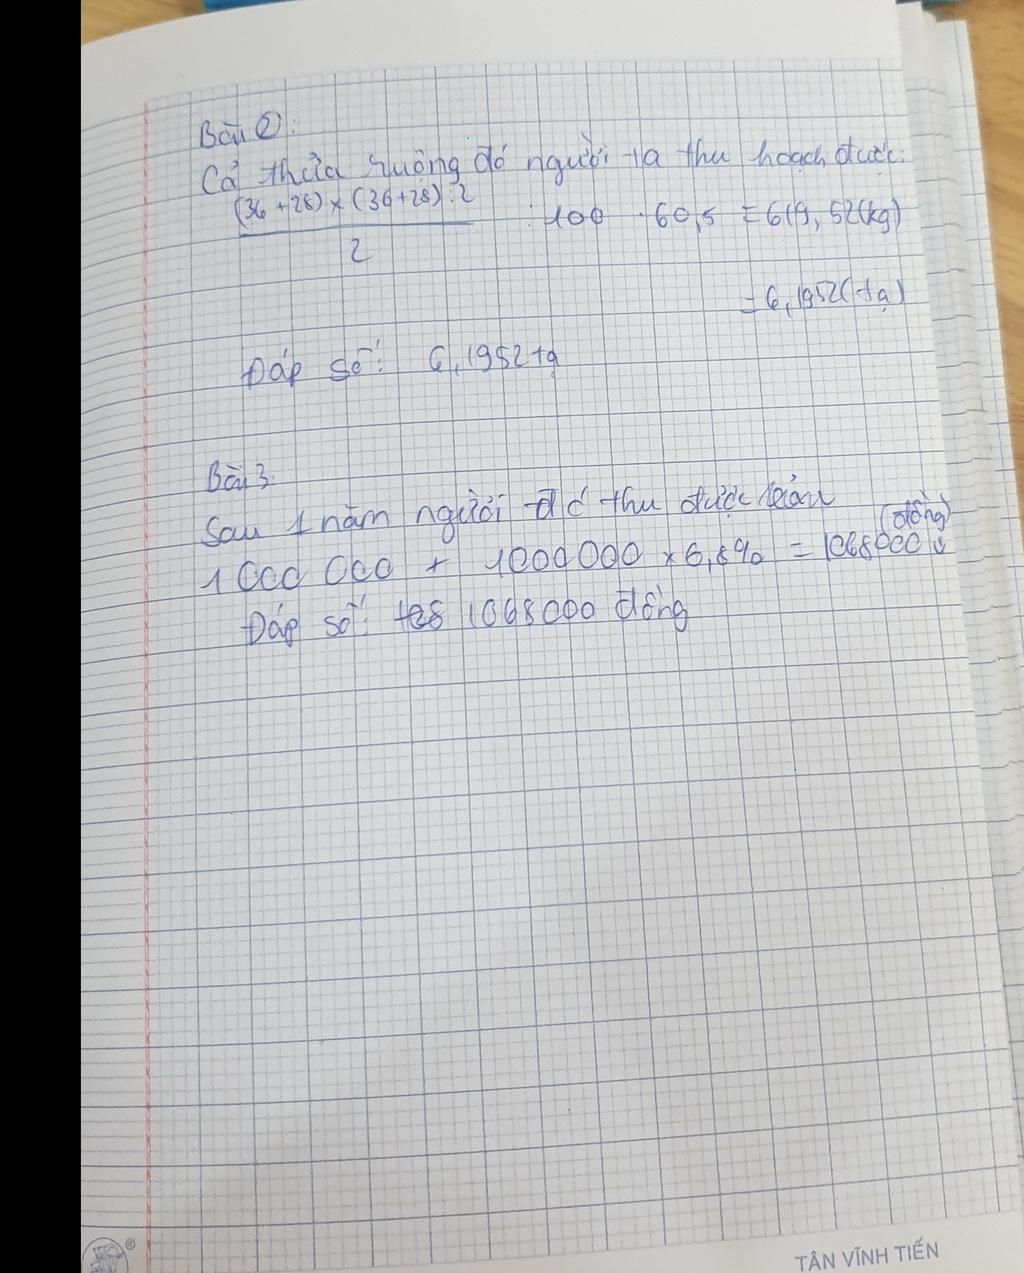 Bài ②:
Cả thửa ruộng đó người ta thu hoạch được:
(36 + 28) × (36+28) : 2
2
: 100 · 60,5 = 619,52(kg)
= 6,1952(tạ)
Đáp số: 6,1952 tạ
Bài 3.
Sau 1 năm người đó thu được
(đồng)
1000 000 + 1000 000 × 6,8% = 1068000
Đáp số: 1068000 đồng
TÂN VĨNH TIẾN